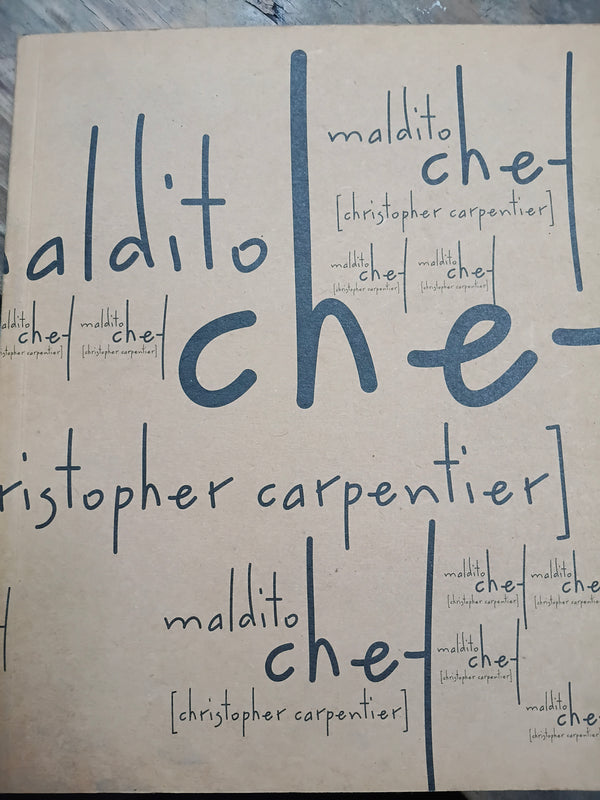 maldito
chef
[christopher carpentier]
aldito
che
maldito
chef
[christopher carpentier]
maldito
chef
[christopher carpentier]
aldito
chef
ristopher carpentier]
maldito
chef
[christopher carpentier]
ristopher carpentier]
maldito
chef
[christopher carpentier]
maldito
chef
[christopher carpentier]
maldito
che
[christopher carpentier
maldito
chef
[christopher carpentier]
maldito
che
[christopher carpentier